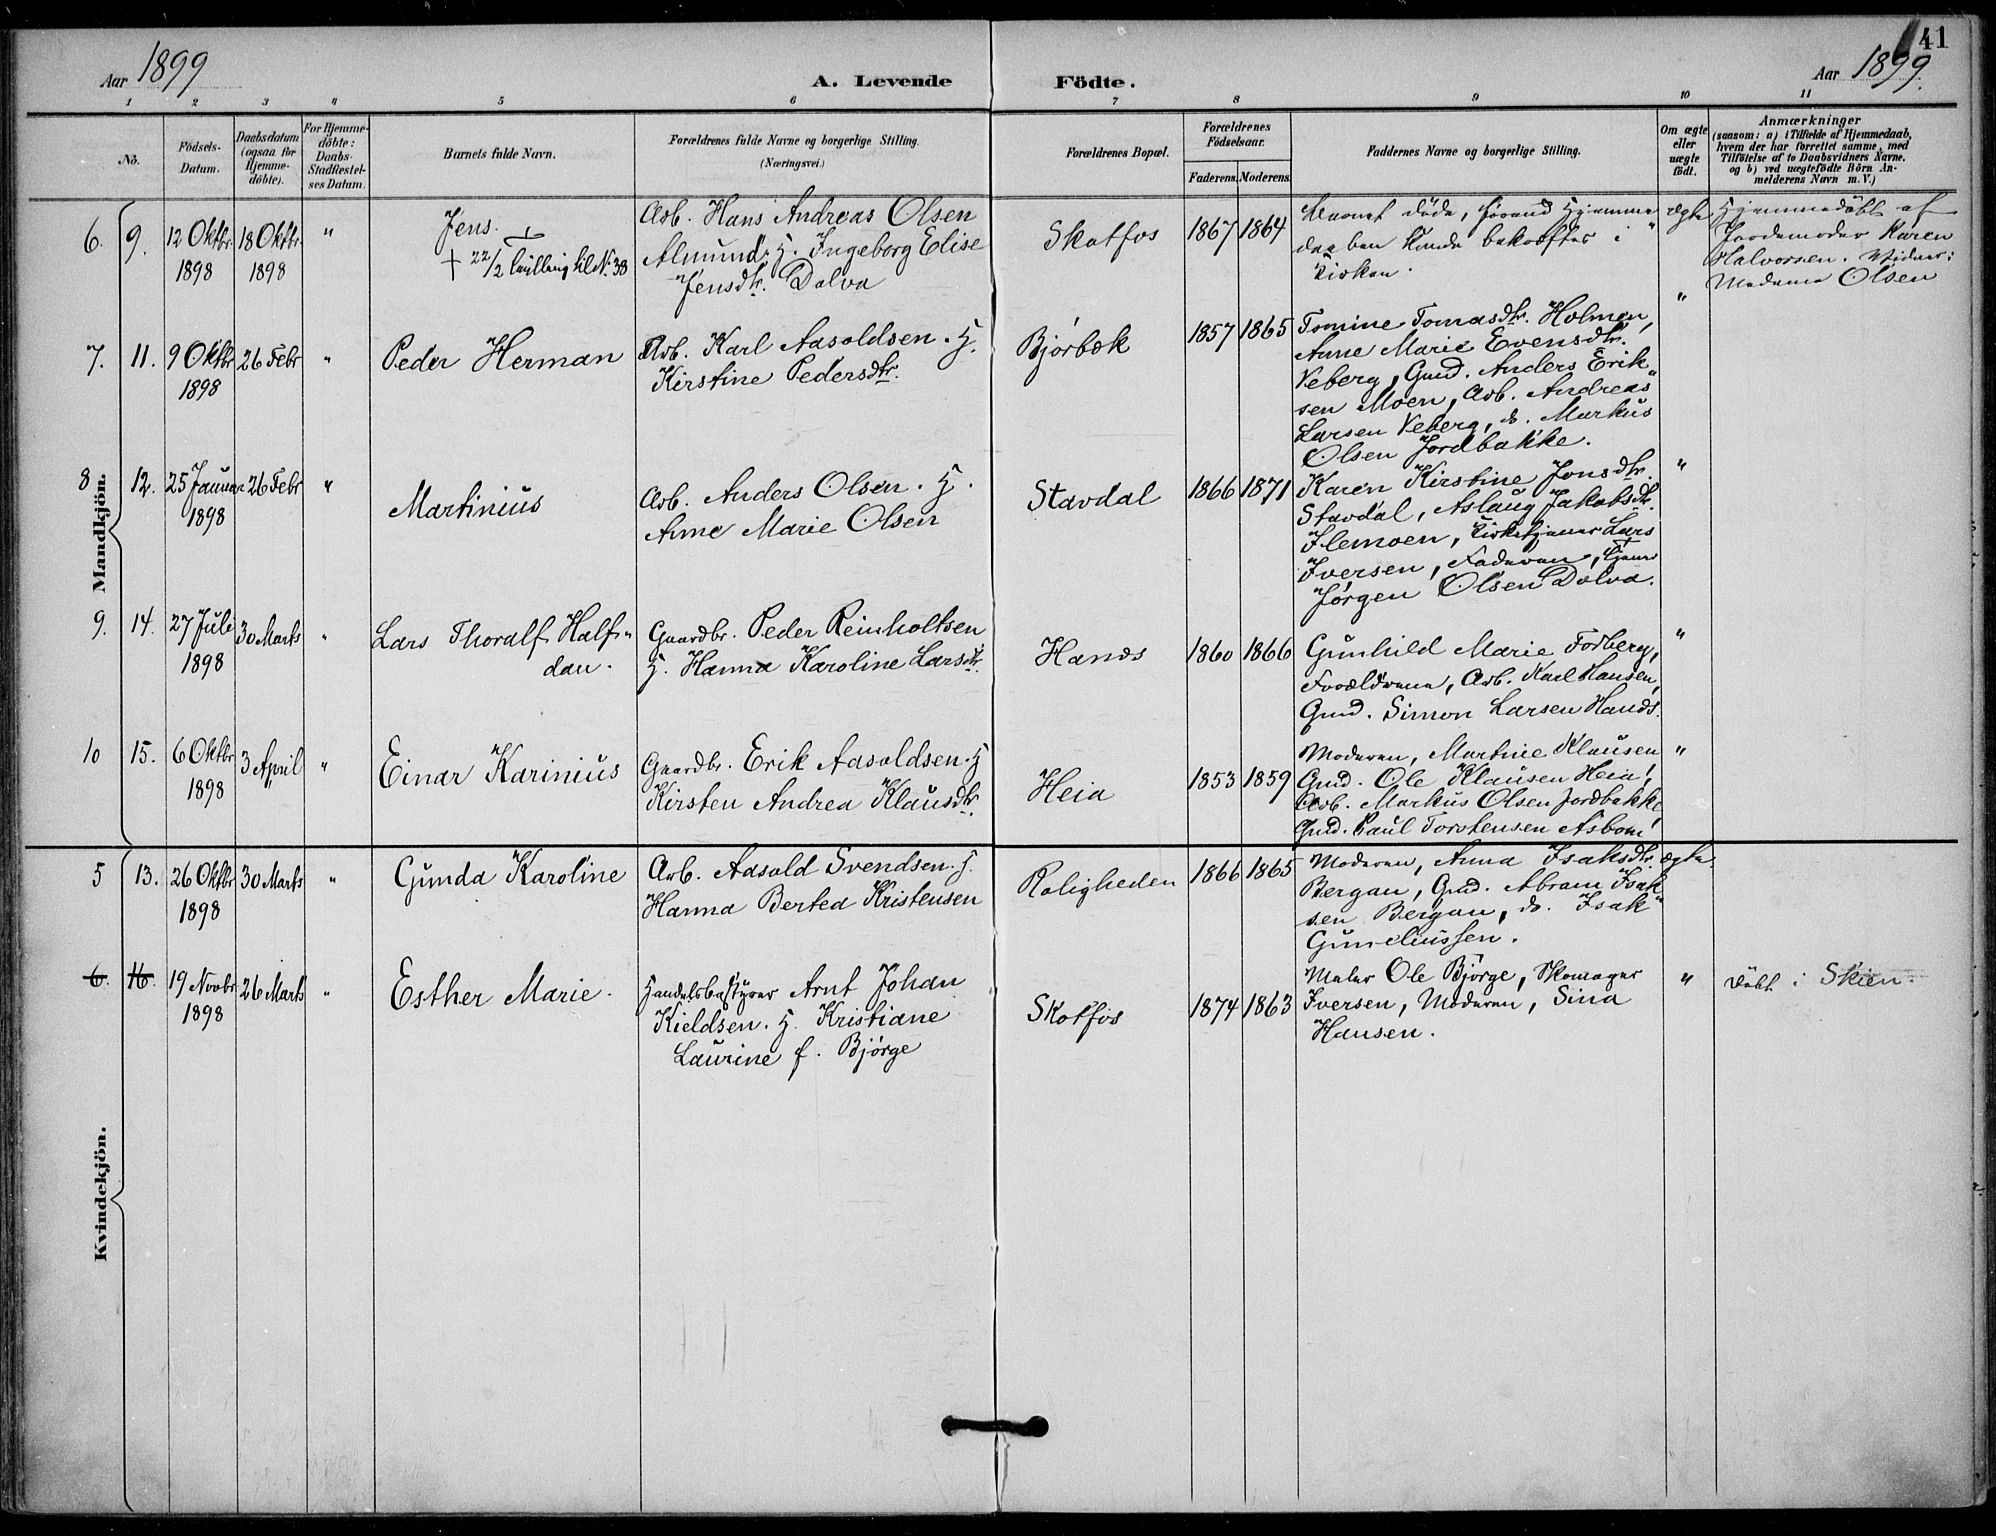 41
Aar 1899
A. Levende Fødte.
Aar 1899.
1 2 3 4 5 6 7 8 9 10 11
No.
Födsels-
Datum.
Daabsdatum
(ogsaa for
Hjemme-
döbte).
For Hjemme-
döbte:
Daabs-
Stadfæstel-
ses Datum.
Barnets fulde Navn.
Forældrenes fulde Navne og borgerlige Stilling.
(Næringsvei.)
Forældrenes Bopæl.
Forældrenes
Födselsaar.
Faderens. Moderens.
Faddernes Navne og borgerlige Stilling.
Om ægte
eller
uægte
født.
Anmærkninger
(saasom: a) i Tilfælde af Hjemmedaab,
hvem der har forrettet samme, med
Tilföielse af to Daabsvidners Navne.
og b) ved uægtefödte Börn An-
melderens Navn m. V.)
Mandkjön.
6. 9. 12 Oktbr.
1898
18 Oktbr.
1898
"
Jens.
† 22/2 Tvilling til No. 38
Arb. Hans Andreas Olsen
Almund. H. Ingeborg Elise
Jensdtr. Dolva
Skotfos
1867 1864
Barnet døde, førend Hjemme
daaben kunde bekræftes i
Kirken.
ægte
Hjemmedøbt af
Jordemoder Karen
Halvorsen. Vidner:
Madame Olsen
7. 11. 9 Oktbr
1898
26 Febr
"
Peder Herman
Arb. Karl Aasoldsen. H.
Kirstine Pedersdtr.
Bjørbæk
1857 1865
Tomine Tomasdtr. Holmen,
Anne Marie Evensdtr.
Veberg, Gmd. Anders Erik"
sen Moen, Arb. Andreas
Larsen Veberg, do. Markus
Olsen Jordbakke.
"
8 12. 25 Januar
1898
26 Febr
"
Martinius
Arb. Anders Olsen. H.
Anne Marie Olsen
Stavdal
1866 1871
Karen Kirstine Jonsdtr.
Stavdal, Aslaug Jakobsdtr.
Flemoen, Kirketjener Lars
Iversen, Faderen, Tjener
Jørgen Olsen Dolva.
"
9. 14. 27 Juli
1898
30 Marts
"
Lars Thoralf Half"
dan.
Gaardbr. Peder Reinholtsen
H. Hanna Karoline Larsdtr.
Hanæs
1860 1866
Gunhild Marie Fosberg,
Forældrene, Arb. Karl Hansen,
Gmd. Simon Larsen Hanæs.
"
10 15. 6 Oktbr
1898
3 April
"
Einar Karinius
Gaardbr. Erik Aasoldsen. H
Kirsten Andrea Klausdtr.
Heia
1853 1859
Moderen, Martine Klausen,
Gmd. Ole Klausen Heia,
Arb. Markus Olsen Jordbakke,
Gmd. Paul Torstensen Åsbom
"
Kvindekjön.
5 13. 26 Oktbr
1898
30 Marts
"
Gunda Karoline
Arb. Aasold Svendsen. H.
Hanna Bertea Kristensen
Roligheden
1866 1865
Moderen, Anna Isaksdtr.
Bergan, Gmd. Abram Isak"
sen Bergan, do. Isak
Guneliussen.
ægte
6. 16. 19 Novbr
1898
26 Marts
"
Esther Marie.
Handelsbestyrer Arnt Johan
Kieldsen. H. Kristiane
Laurine f. Bjørge
Skotfos
1874 1863
Maler Ole Bjørge, Skomager
Iversen, Moderen, Sina
Hansen.
"
Døbt i Skien.